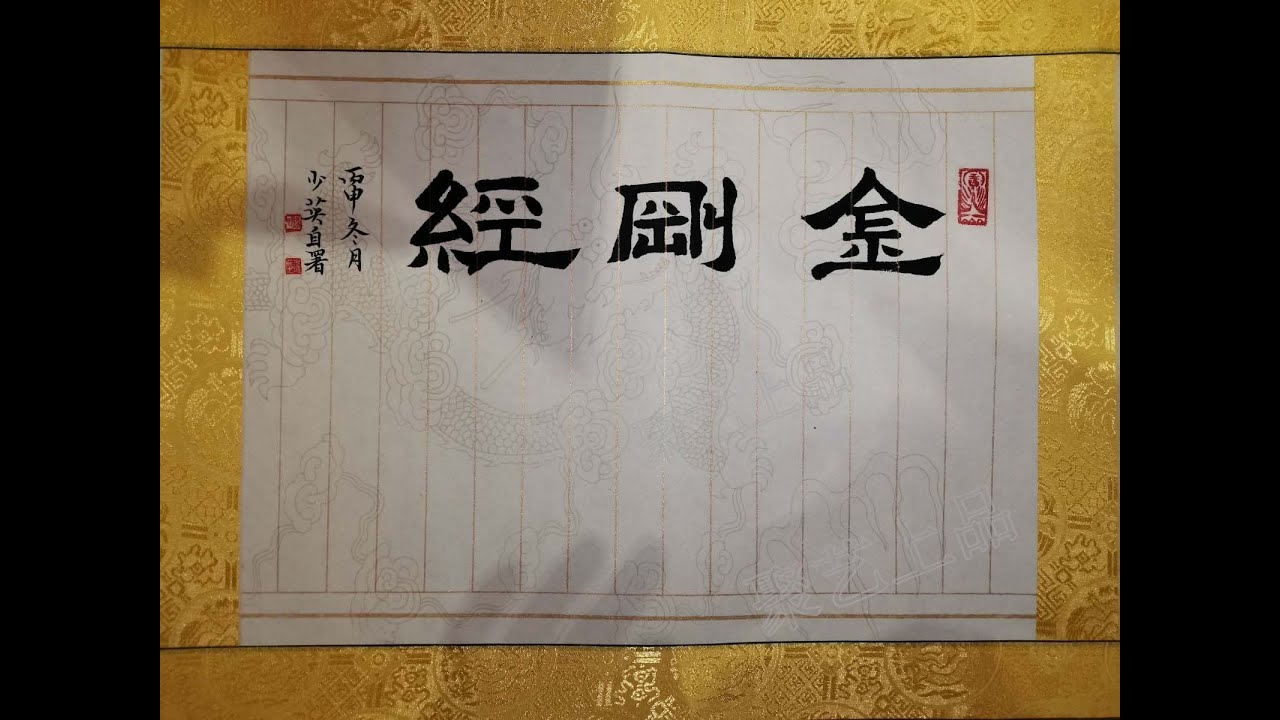 金剛經
丙申冬月
少英自署
上品
聚艺上品